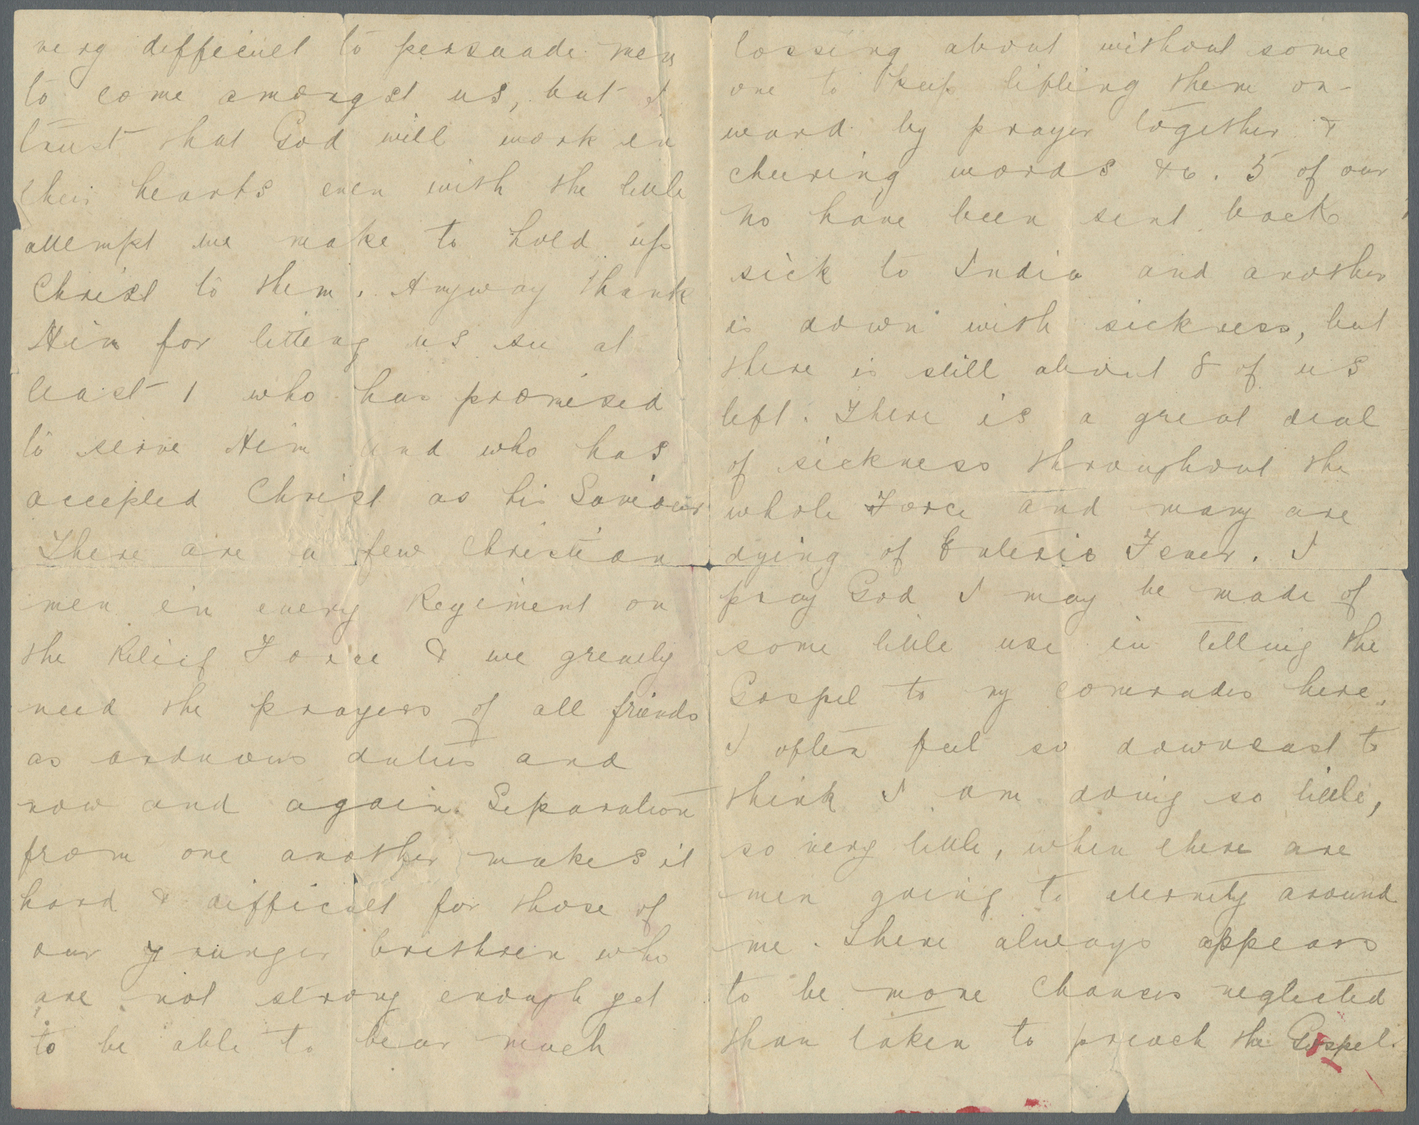 very difficult to persuade men
to come amongst us, but I
trust that God will work in
their hearts even with the little
attempt we make to hold up
Christ to them. Anyway thank
Him for letting us see at
least 1 who has promised
to serve Him and who has
accepted Christ as his Saviour
There are a few Christian
men in every Regiment on
the Relief Force & we greatly
need the prayers of all friends
as arduous duties and
now and again Separation
from one another makes it
hard & difficult for those of
our younger brethren who
are not strong enough yet
to be able to bear much
tossing about without some
one to keep lifting them on-
ward by prayer together &
cheering words &c. 5 of our
No have been sent back
sick to India and another
is down with sickness, but
there is still about 8 of us
left. There is a great deal
of sickness throughout the
whole Force and many are
dying of Enteric Fever. I
pray God I may be made of
some little use in telling the
Gospel to my comrades here.
I often feel so downcast to
think I am doing so little,
so very little, when there are
men going to eternity around
me. There always appears
to be more Chances neglected
than taken to preach the Gospel.